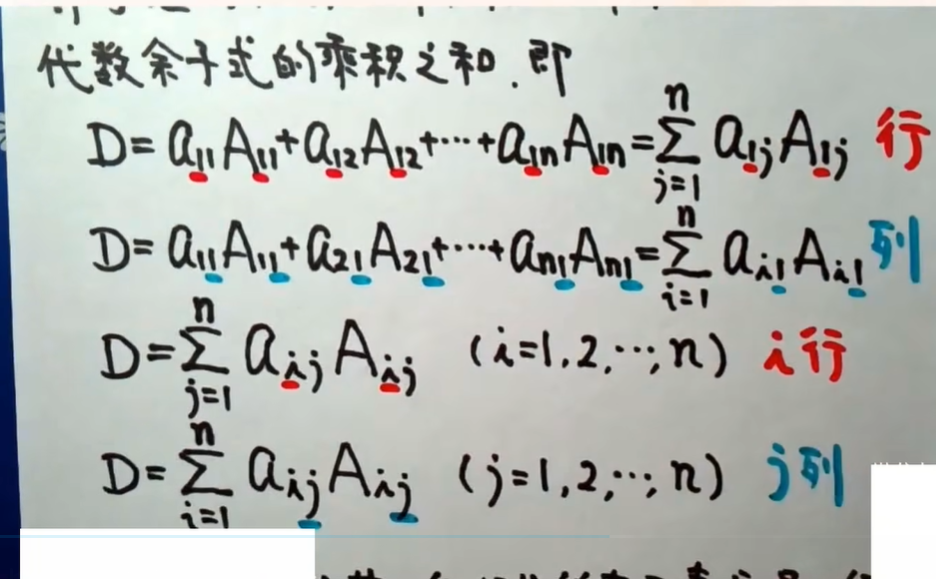 代数余子式的乘积之和.即
D=a₁₁A₁₁+a₁₂A₁₂+···+a₁ₙA₁ₙ=∑ⁿⱼ₌₁ a₁ⱼA₁ⱼ 行
D=a₁₁A₁₁+a₂₁A₂₁+···+aₙ₁Aₙ₁=∑ⁿᵢ₌₁ aᵢ₁Aᵢ₁ 列
D=∑ⁿⱼ₌₁ aᵢⱼAᵢⱼ (i=1,2,···,n) i行
D=∑ⁿᵢ₌₁ aᵢⱼAᵢⱼ (j=1,2,···,n) j列